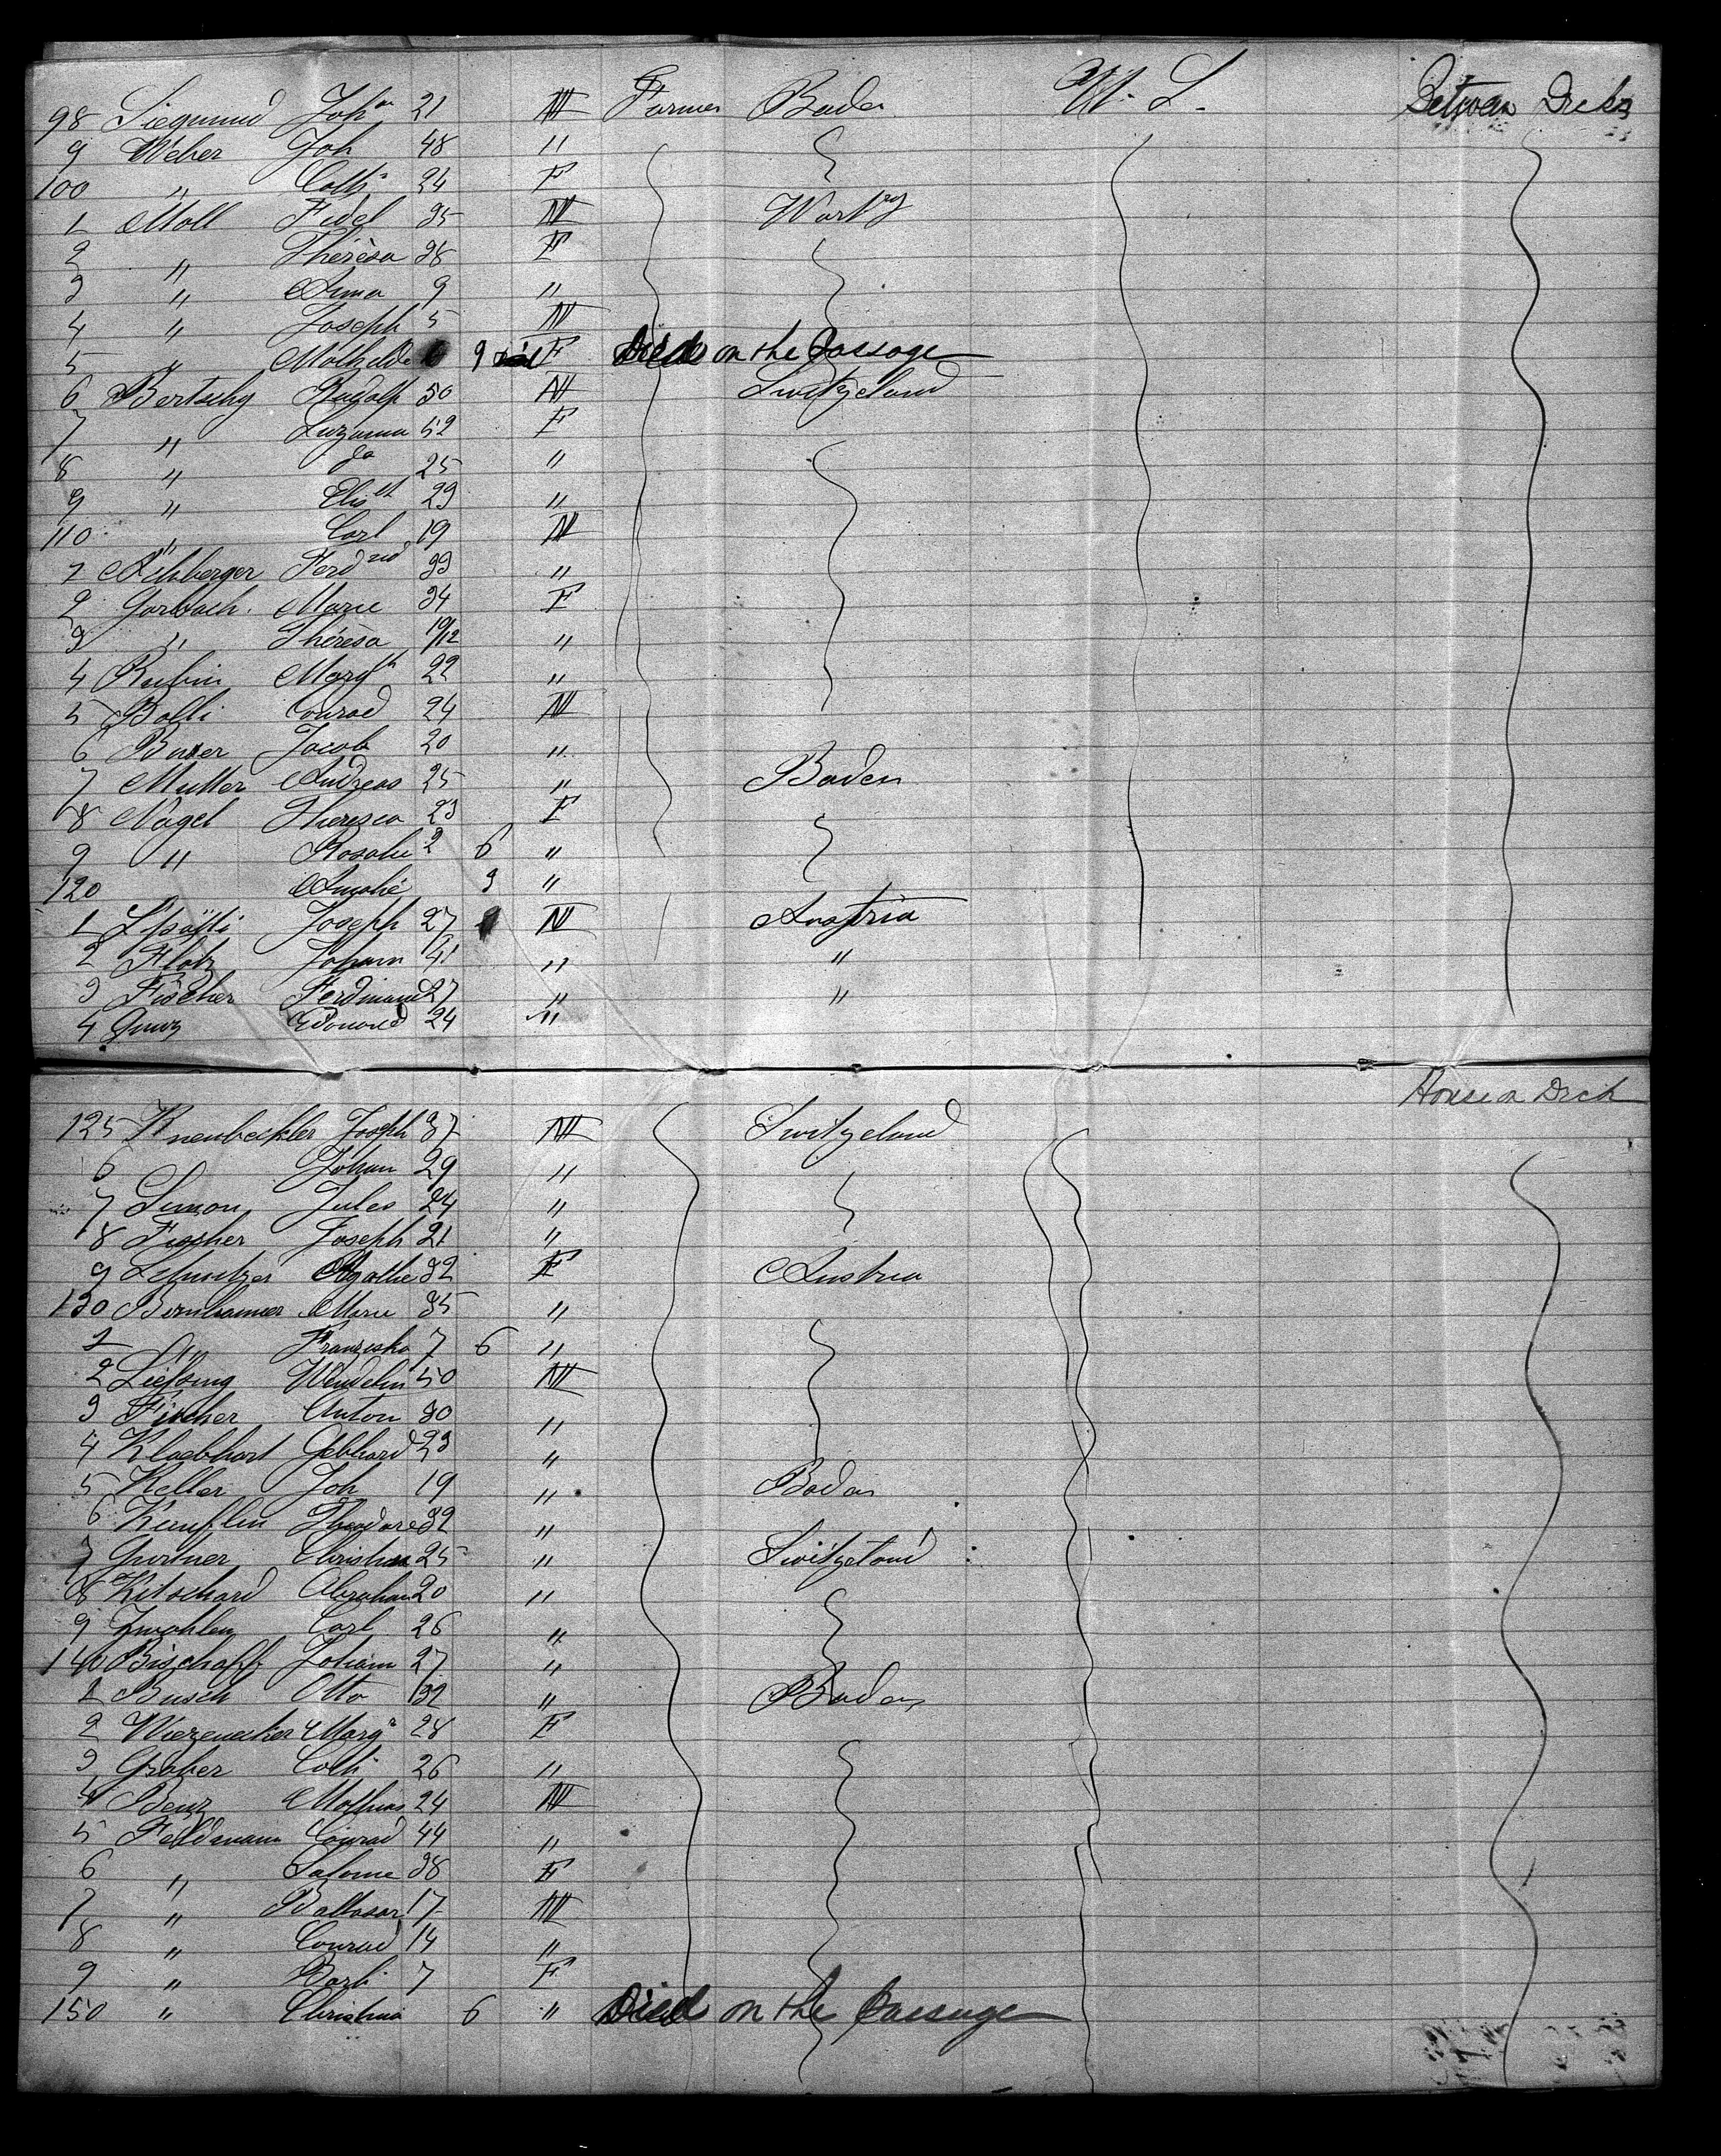 98 Siegmund Joh.n 21 M Farmer Baden U. S. Between Decks
9 Weber Joh 48 "
100 " Cath.a 24 F
1 Moll Fidel 35 M Wurt.g
2 " Thérèsa 38 F
3 " Anna 9 "
4 " Joseph 5 M
5 " Mathelde 9 F Died on the Passage
6 Bertschy Rudolf 50 M Switzeland
7 " Suzanna 52 F
8 " do 25 "
9 " Elis.th 23 "
110 " Carl 19 M
1 Ferd.nd 33 "
2 Gorbach. Marie 34 F
3 " Thérèsa 10/12 "
4 Rubin Marg.th 22 "
5 Bolli Conrad 24 M
6 Buser Jacob 20 "
7 Mutter Andreas 25 " Baden
8 Nagel Theresea 23 F
9 " Rosalie 2 6 "
120 Amalie 3 "
1 Joseph 27 M Austria
2 Flatz Johann 41 " "
3 Fischer Ferdinand 27 " "
4 Edouard 24 "
House on Deck
125 Kneubuhler Joseph 37 M Switzeland
6 Johan 29 "
7 Simon Jules 24 "
8 Fischer Joseph 21 "
9 Schnetzer Agathe 32 F Austria
130 Marie 35 "
1 " Franziska 7 6 "
2 Wendelin 50 M
3 Fischer Anton 30 "
4 Gebhard 23 "
5 Keller Joh 19 " Baden
6 Theodore 32 "
7 Gurtner Christian 25 " Switzeland
8 Kitschard Abraham 20 "
9 Zwahlen Carl 26 "
140 Bischoff Johann 27 "
1 Busch Otto 32 " Baden
2 Marg.a 28 F
3 Graber Cath 26 "
4 Benz Mathias 24 M
5 Feldmann Conrad 44 "
6 " Salome 38 F
7 " Baltasar 17 M
8 " Conrad 14 "
9 " Barb. 7 F
150 " Christina 6 " Died on the Passage